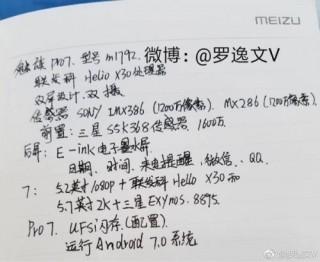 MEIZU
魅族 Pro7. 型号 m1792.
微博：@罗逸文V
联发科 Helio X30处理器
双屏设计. 双摄
传感器 SONY IMX386 (1200万像素). MX286 (1200万像素).
前置：三星 S5K3P8传感器. 1600万.
后屏：E-ink电子墨水屏
日期、时间、来电提醒、微信、QQ.
7： 5.2英寸1080p+联发科Helio X30和
5.7英寸2K+三星EXynos.8895.
Pro7. UFSi闪存(配置).
运行Android 7.0系统